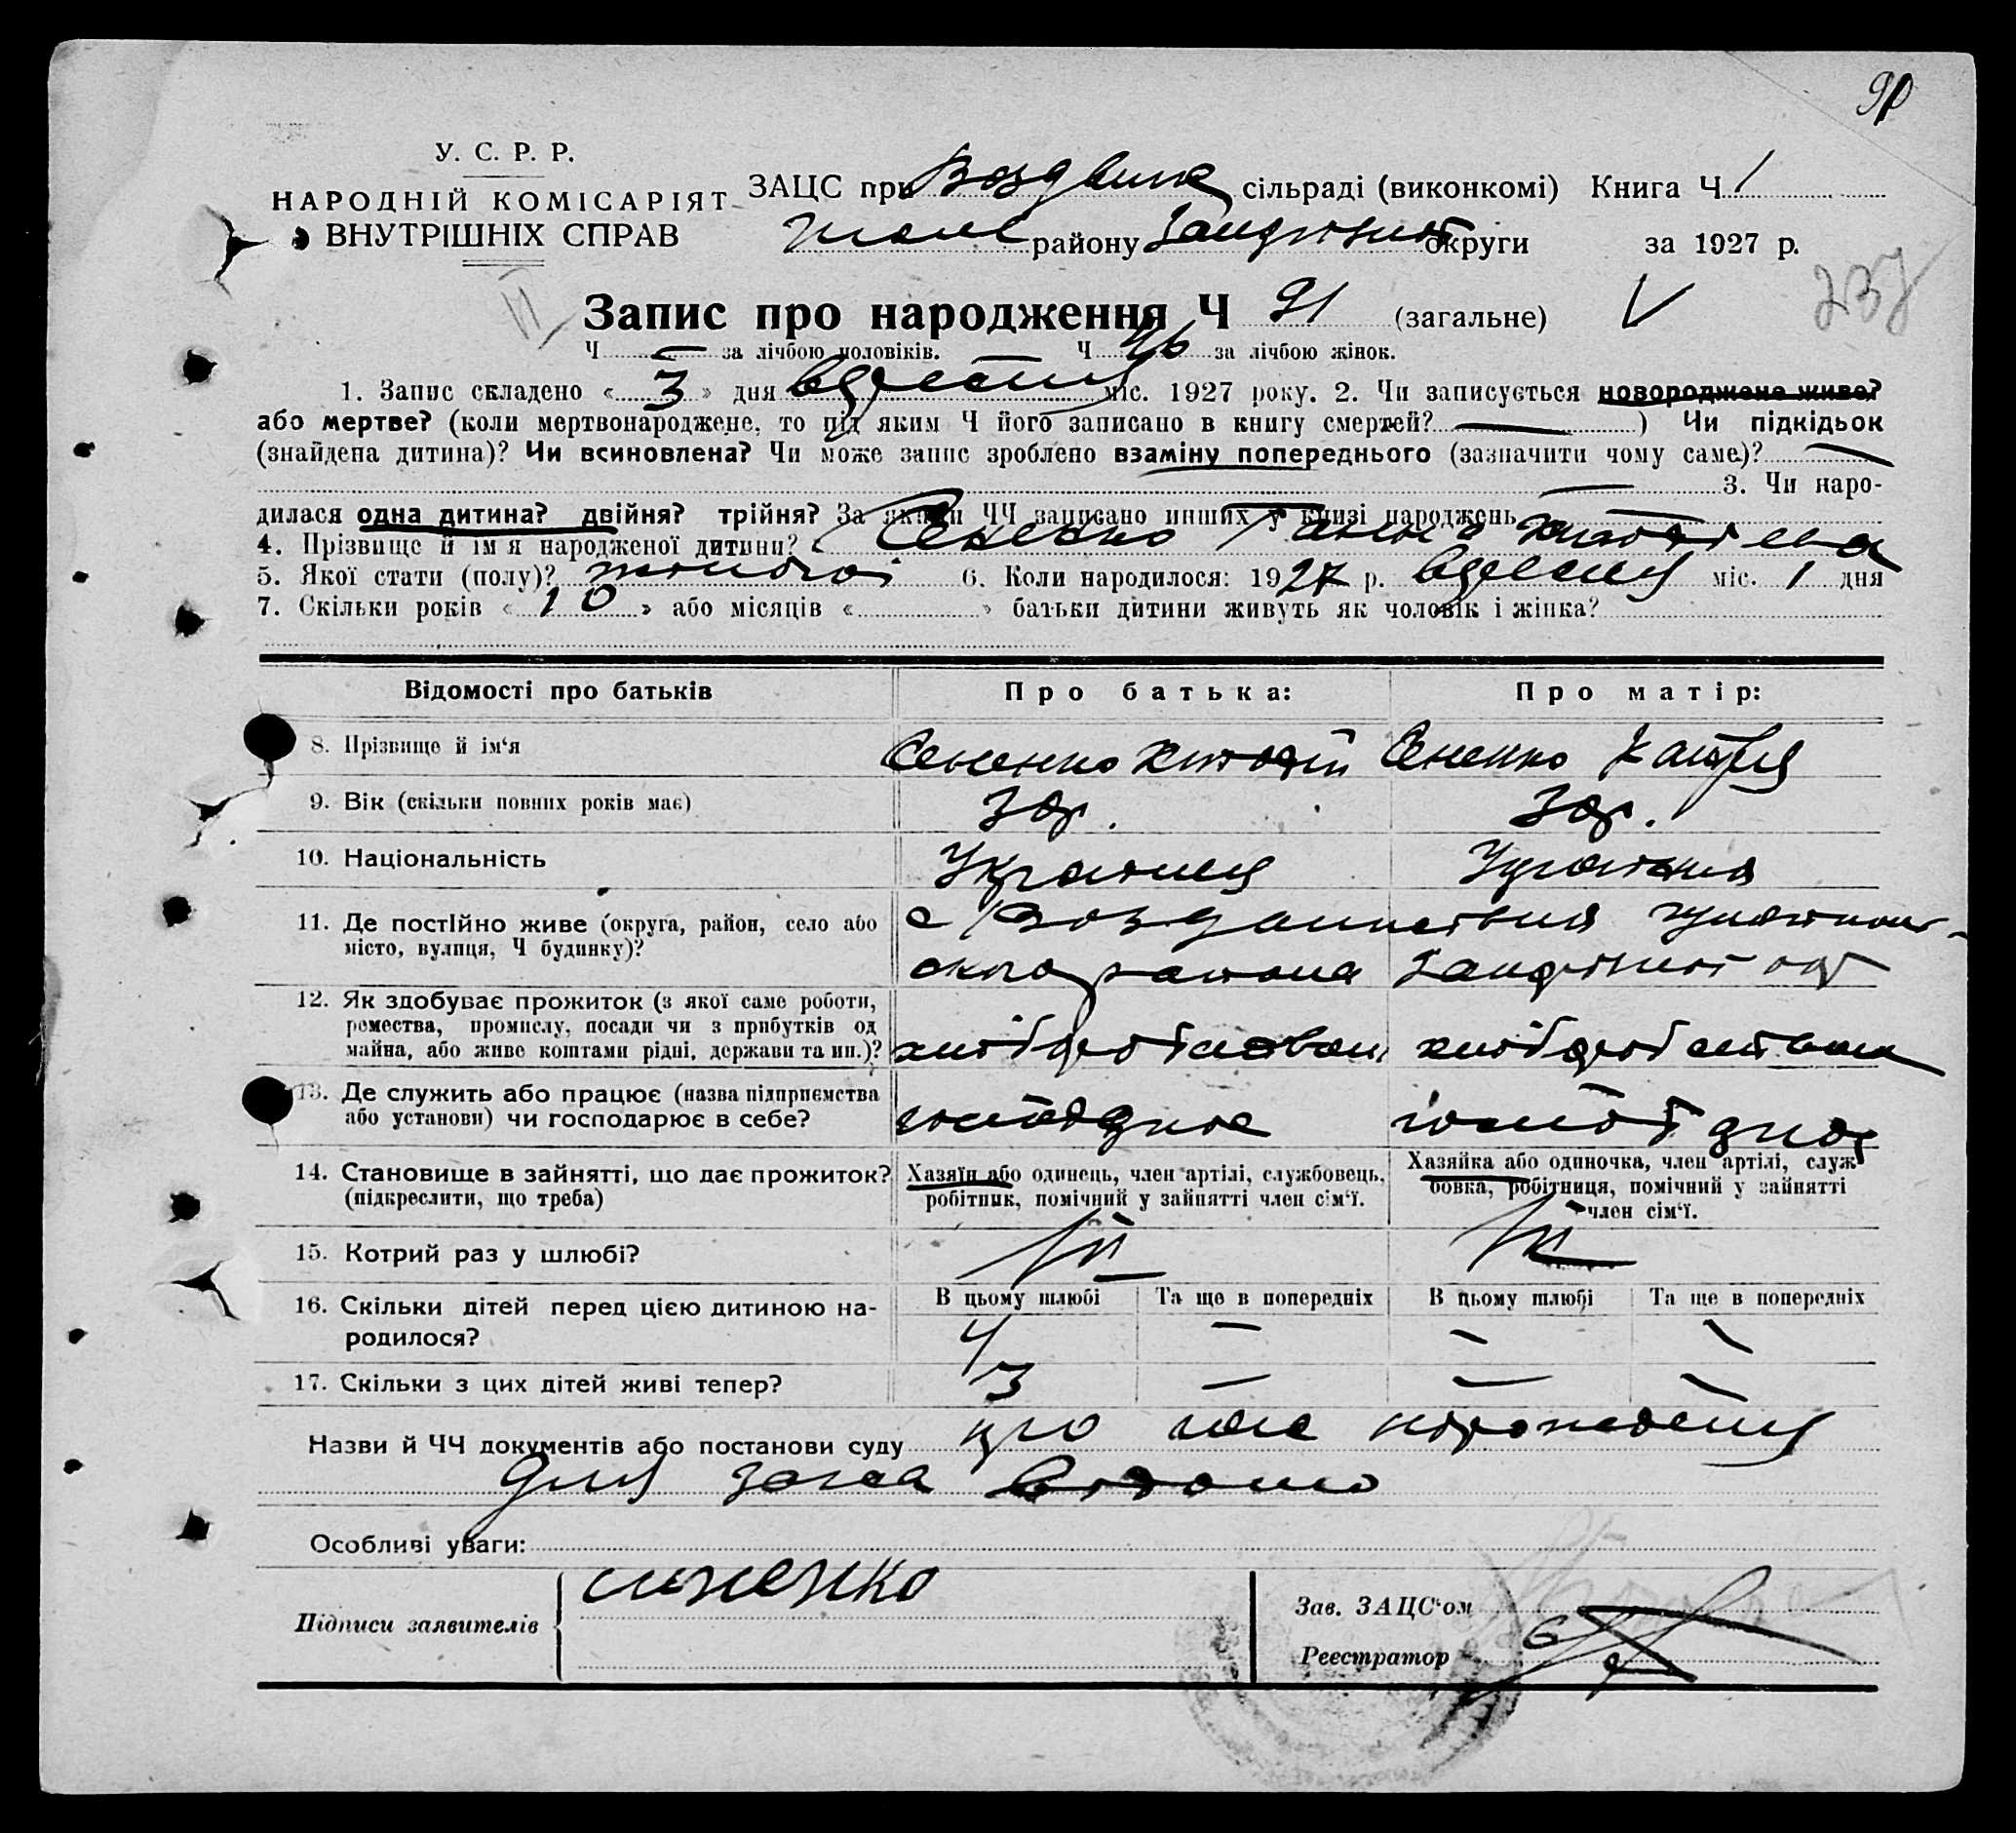 90
У. С. Р. Р.
НАРОДНІЙ КОМІСАРІЯТ
ВНУТРІШНІХ СПРАВ
ЗАЦС при Воздвиж сільраді (виконкомі) Книга Ч 1
району округи за 1927 р.
237
Запис про народження Ч 91 (загальне) V
Ч — за лічбою чоловіків. Ч 46 за лічбою жінок.
1. Запис складено « 3 » дня вересня міс. 1927 року. 2. Чи записується новороджене живе?
або мертве? (коли мертвонароджене, то під яким Ч його записано в книгу смертей? — ) Чи підкідьок
(знайдена дитина)? Чи всиновлена? Чи може запис зроблено взаміну попереднього (зазначити чому саме)? —
— 3. Чи наро-
дилася одна дитина? двійня? трійня? За якими ЧЧ записано инших у книзі народжень —
4. Прізвище й ім'я народженої дитини? Сененко Ганна
5. Якої стати (полу)? жіночої 6. Коли народилося: 1927 р. вересня міс. 1 дня
7. Скільки років « 10 » або місяців « » батьки дитини живуть як чоловік і жінка?
Відомості про батьків Про батька: Про матір:
8. Прізвище й ім'я Сененко Сененко Катря
9. Вік (скільки повних років має) 30р. 30р.
10. Національність Українец Українка
11. Де постійно живе (округа, район, село або
місто, вулиця, Ч будинку)?
с Воздвиженська
района
12. Як здобуває прожиток (з якої саме роботи,
ремества, промислу, посади чи з прибутків од
майна, або живе коштами рідні, держави та ин.)?
хліборобством хліборобством
13. Де служить або працює (назва підприємства
або установи) чи господарює в себе?
14. Становище в зайнятті, що дає прожиток?
(підкреслити, що треба)
Хазяїн або одинець, член артілі, службовець,
робітник, помічний у зайнятті член сім'ї.
Хазяйка або одиночка, член артілі, служ-
бовка, робітниця, помічний у зайнятті
член сім'ї.
15. Котрий раз у шлюбі?
16. Скільки дітей перед цією дитиною на-
родилося?
В цьому шлюбі Та ще в попередніх В цьому шлюбі Та ще в попередніх
4 — — —
17. Скільки з цих дітей живі тепер? 3 — — —
Назви й ЧЧ документів або постанови суду про
для загса відомо
Особливі уваги:
Підписи заявителів синенко
Зав. ЗАЦС'ом
Реестратор